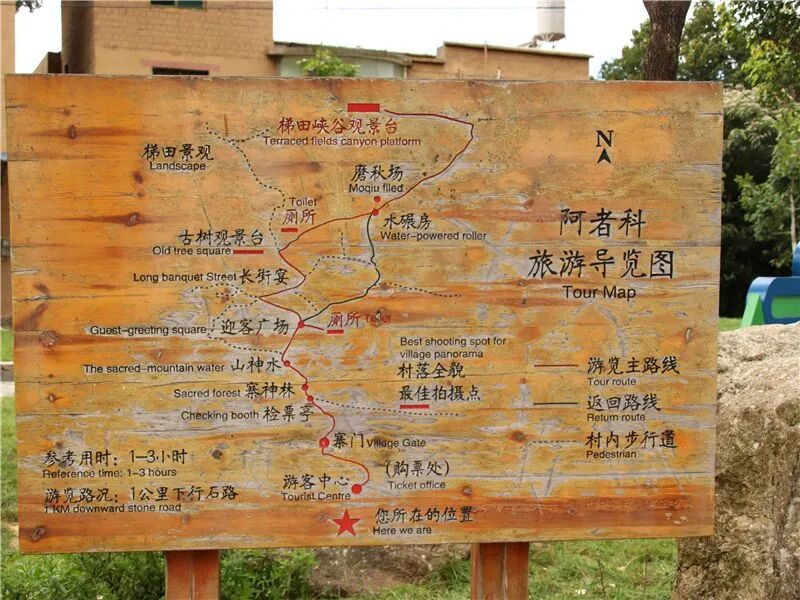 阿者科
旅游导览图
Tour Map
N
梯田峡谷观景台
Terraced fields canyon platform
梯田景观
Landscape
磨秋场
Moqiu filed
Toilet
厕所
水碾房
Water-powered roller
古树观景台
Old tree square
Long banquet Street 长街宴
Guest-greeting square 迎客广场
厕所 Toilet
The sacred-mountain water 山神水
Best shooting spot for
village panorama
村落全貌
最佳拍摄点
Sacred forest 寨神林
Checking booth 检票亭
寨门 Village Gate
游客中心
Tourist Centre
(购票处)
Ticket office
您所在的位置
Here we are
参考用时：1-3小时
Reference time: 1-3 hours
游览路况：1公里下行石路
1 KM downward stone road
游览主路线
Tour route
返回路线
Return route
村内步行道
Pedestrian